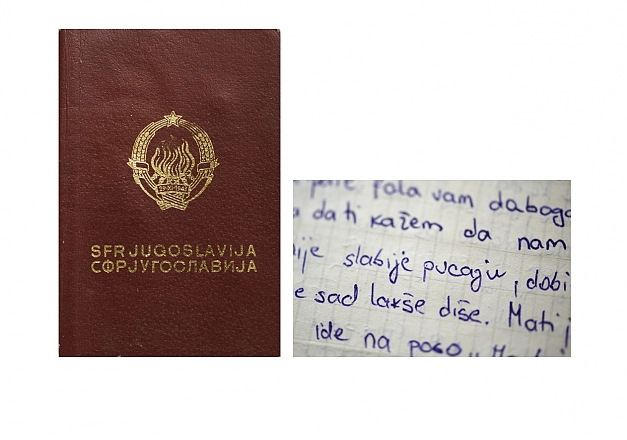 29·XI·1943
SFR JUGOSLAVIJA
СФРЈУГОСЛАВИЈА
fala vam daboga
da ti kažem da nam
slabije pucaju, dobi
e sad lakše diše. Mati
ide na poso